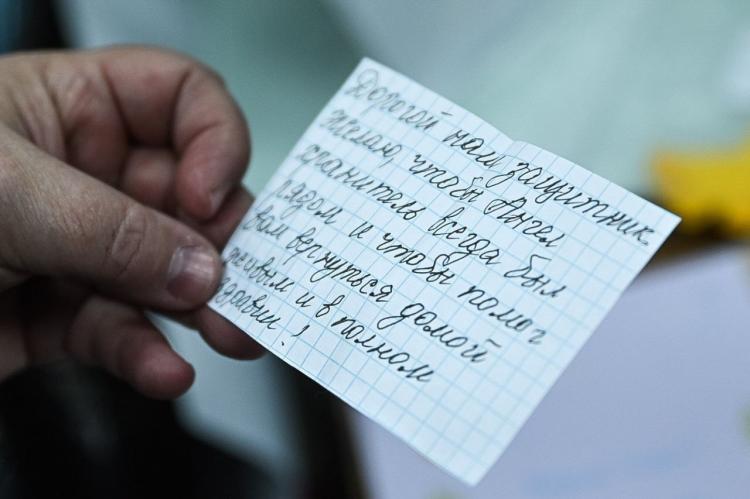 Дорогой наш защитник
желаю, чтобы Ангел
хранитель всегда был
рядом и чтобы помог
вам вернуться домой
живым и в полном
здравии!